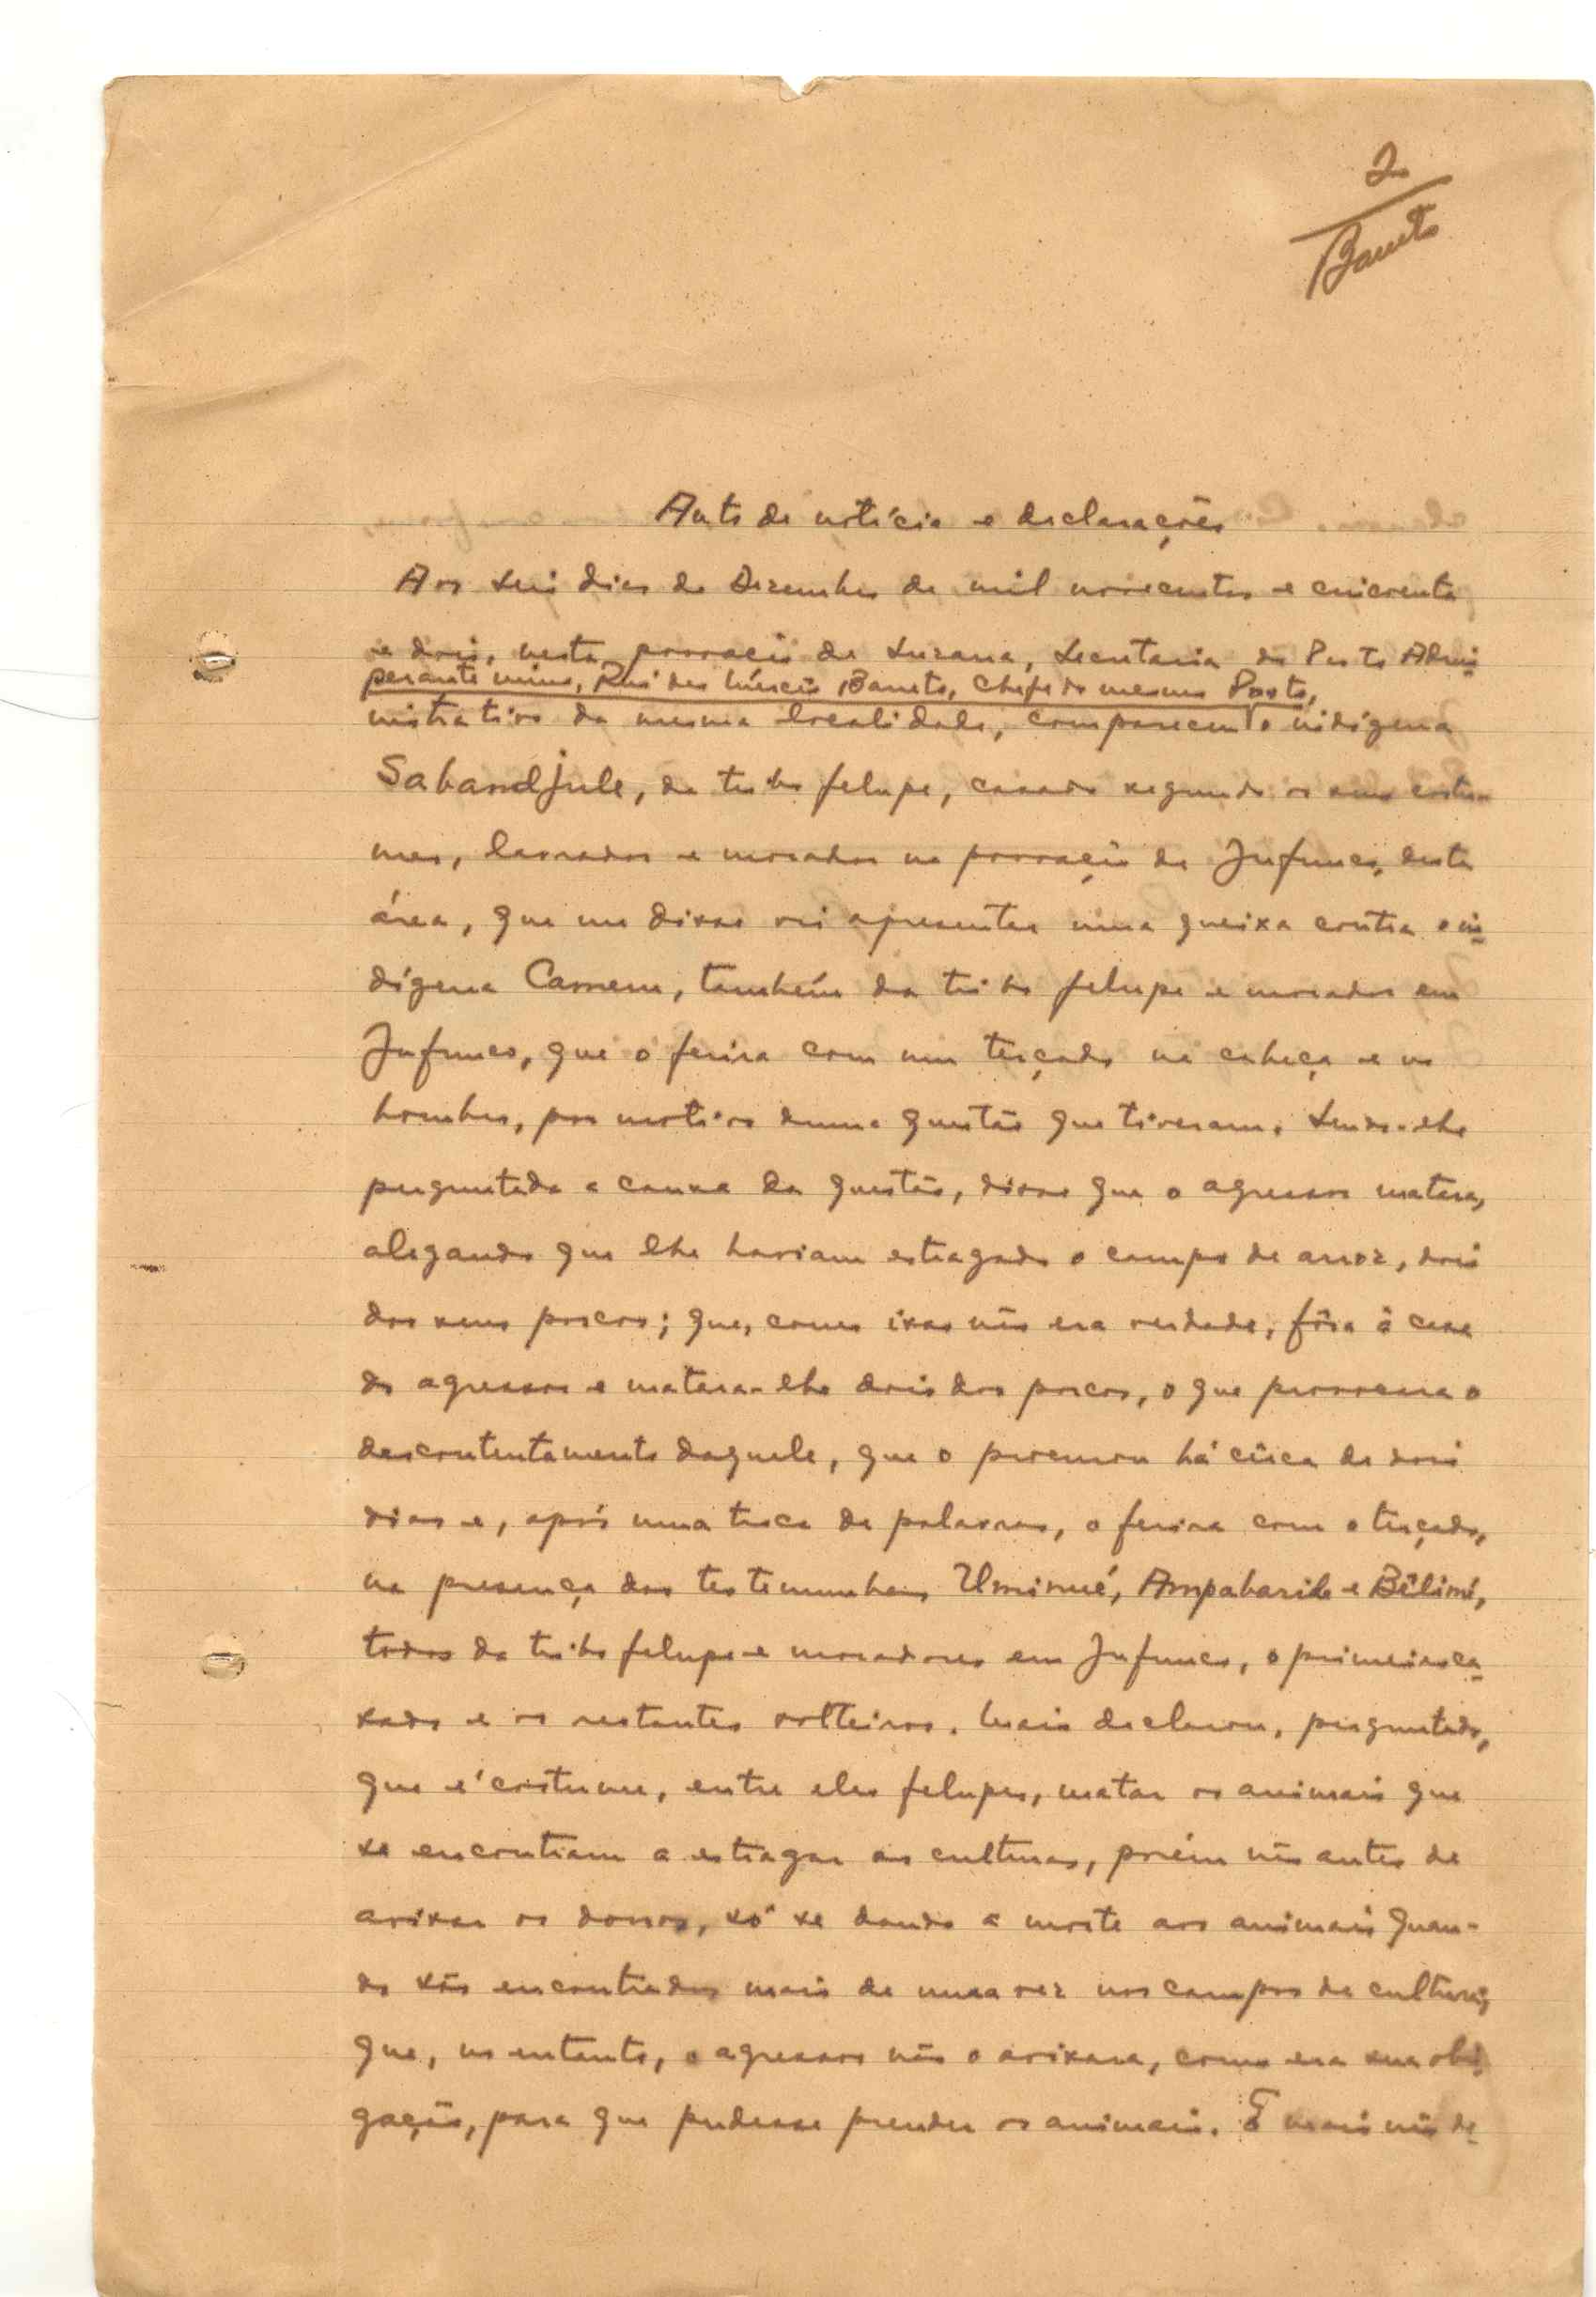 2
Barreto
Auto de notícia e declarações
Aos seis dias de Dezembro de mil novecentos e cincoenta
e dois, nesta povoação de Suzana, Secretaria do Posto Admi-
perante mim, Rui Barreto, Chefe do mesmo Posto,
nistrativo da mesma localidade, compareceu o indígena
Sabandjule, da tribo felupe, casado segundo os seus costu-
mes, lavrador e morador na povoação de Jufunco, desta
área, que me disse vir apresentar uma queixa contra o in-
dígena Camem, também da tribo felupe e morador em
Jufunco, que o ferira com um terçado na cabeça e no
hombro, por motivo duma questão que tiveram. Sendo-lhe
perguntada a causa da questão, disse que o agressor matara,
alegando que lhe haviam estragado o campo de arroz, dois
dos seus porcos; que, como isso não era verdade, fôra à casa
do agressor e matara-lhe dois dos porcos, o que provocara o
descontentamento daquele, que o procurou há cêrca de dois
dias e, após uma troca de palavras, o ferira com o terçado,
na presença das testemunhas Uminué, Ampabarile e Bêlimé,
todos da tribo felupe e moradores em Jufunco, o primeiro ca-
sado e os restantes solteiros. Mais declarou, perguntado,
que é costume, entre eles felupes, matar os animais que
se encontram a estragar as culturas, porém não antes de
avisar os donos, só se dando a morte aos animais quan-
do são encontrados mais de uma vez nos campos de cultura;
que, no entanto, o agressor não o avisara, como era sua obri-
gação, para que pudesse prender os animais. E mais não de-